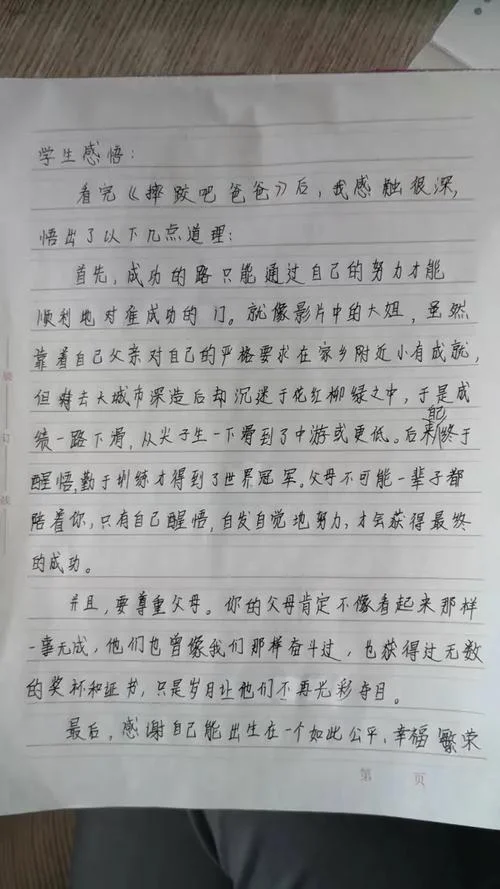 学生感悟：
看完《摔跤吧爸爸》后，我感触很深，
悟出了以下几点道理：
首先，成功的路只能通过自己的努力才能
顺利地对准成功的门。就像影片中的大姐，虽然
靠着自己父亲对自己的严格要求在家乡附近小有成就，
但去大城市深造后却沉迷于花红柳绿之中，于是成
绩一路下滑，从尖子生一下滑到了中游或更低。后来终于
醒悟，勤于训练才得到了世界冠军。父母不可能一辈子都
陪着你，只有自己醒悟，自发自觉地努力，才会获得最终
的成功。
并且，要尊重父母。你的父母肯定不像看起来那样
一事无成，他们也曾像我们那样奋斗过，也获得过无数
的奖杯和证书，只是岁月让他们不再光彩夺目。
最后，感谢自己能出生在一个如此公平、幸福繁荣
第 页
装
订
线